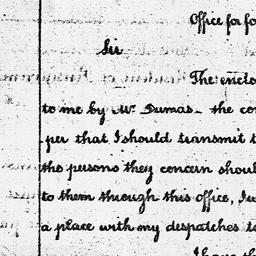 Office for fo
Sir
The enclo
to me by Mr. Dumas - the con
per that I should transmit t
the persons they concern shoul
to them through this office, I
a place with my despatches to
I have th